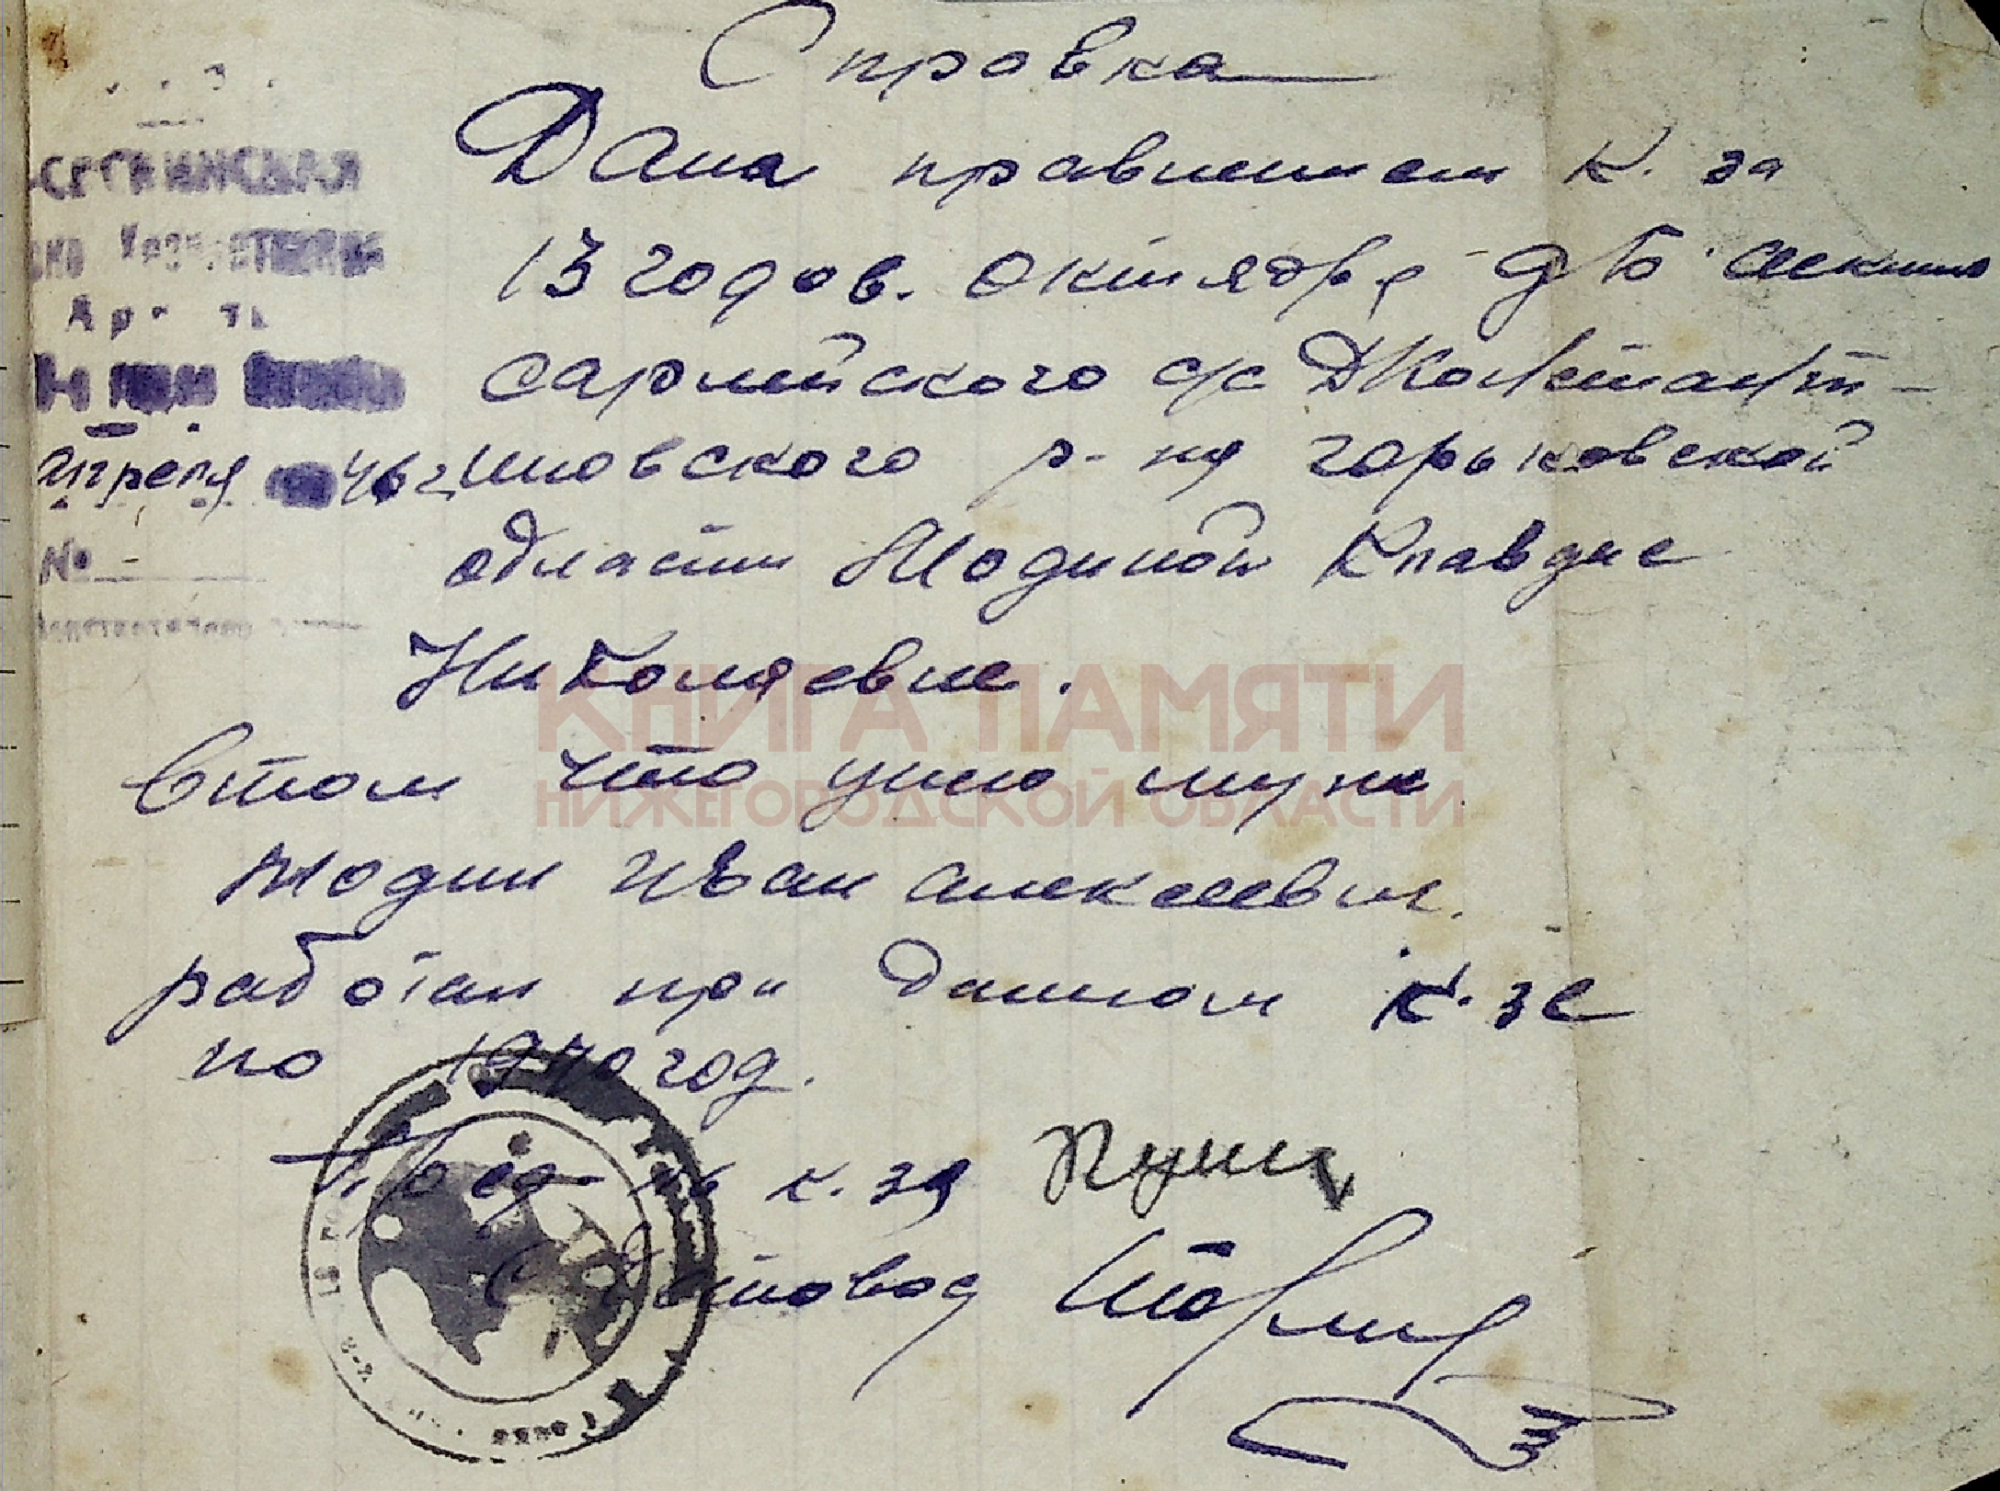 Справка
Дана правлением к. за
13 годов. октября д Б
сарлейского с/с ДКонстант-
иновского р-на горьковской
области Модиной Клавдие
Николаевне.
втом что унею муж
Модин Иван Алексеевич.
работал при данном к. зе
по 1940 год.
Пред-ль к. за
Счетовод
-СЕСКИНСКАЯ
Апреля 46 г.
№
КНИГА ПАМЯТИ
НИЖЕГОРОДСКОЙ ОБЛАСТИ